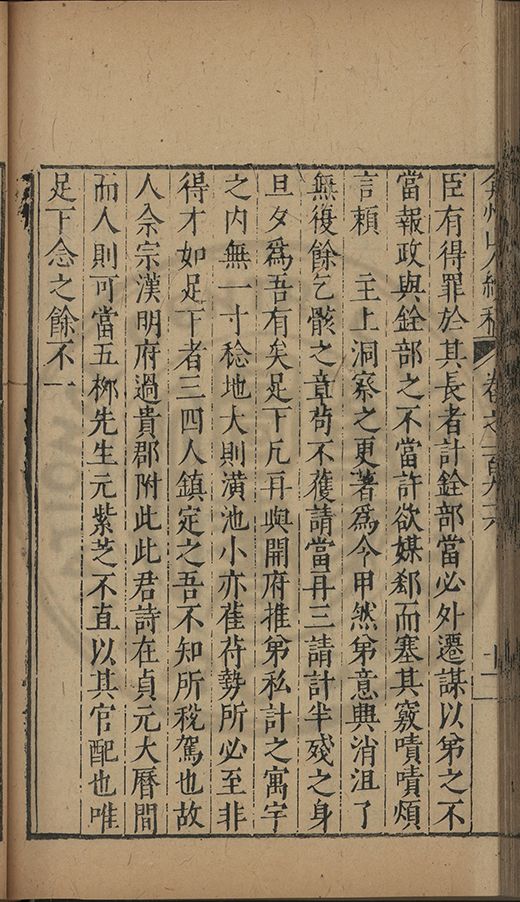 弇州山人續稿 卷之一百九十六 十一
臣有得罪於其長者計銓部當必外遷謀以弟之不
當報政與銓部之不當許欲媒郄而塞其竅嘖嘖煩
言頼 主上洞察之更著為今甲然弟意興消沮了
無復餘乞骸之章茍不𫉬請當再三請計半殘之身
旦夕為吾有矣足下凢再與開府推弟私計之寓宇
之内無一寸稔地大則潢池小亦萑苻勢所必至非
得才如足下者三四人鎮定之吾不知所稅駕也故
人佘宗漢明府過貴郡附此此君詩在貞元大曆間
而人則可當五桺先生元紫芝不直以其官配也唯
足下念之餘不一